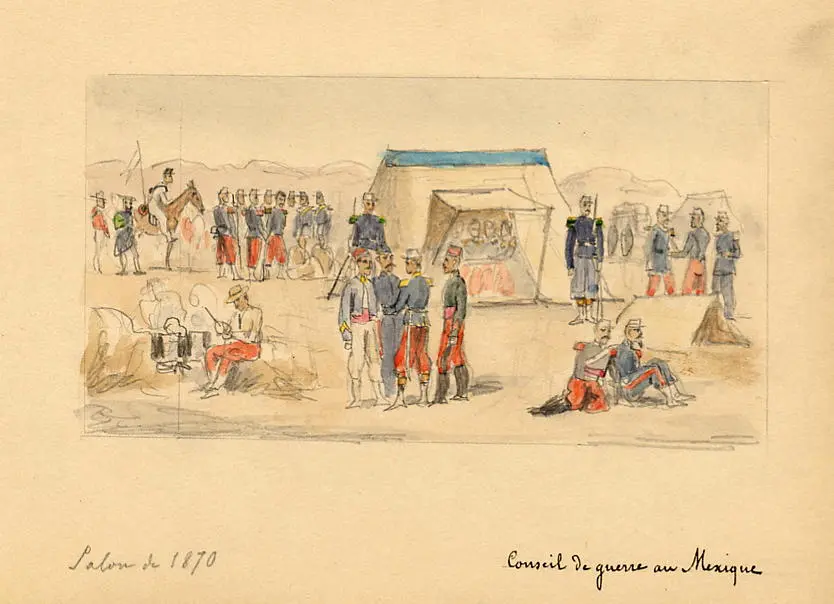 Salon de 1870
Conseil de guerre au Mexique